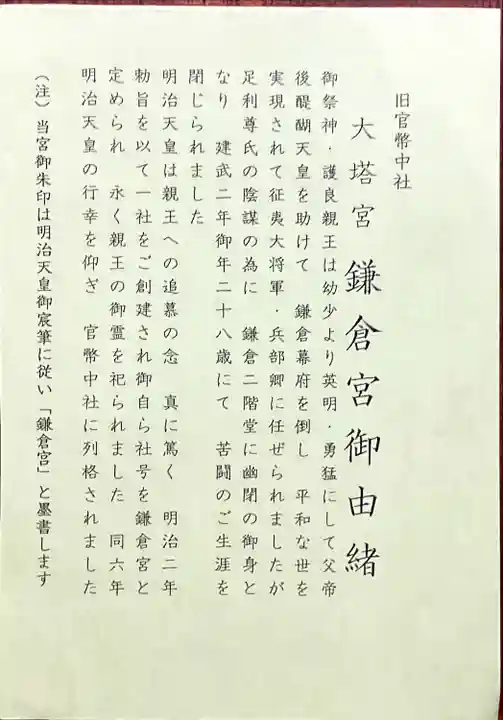 旧官幣中社
大塔宮 鎌倉宮御由緒
御祭神・護良親王は幼少より英明・勇猛にして父帝
後醍醐天皇を助けて 鎌倉幕府を倒し 平和な世を
実現されて征夷大将軍・兵部卿に任ぜられましたが
足利尊氏の陰謀の為に 鎌倉二階堂に幽閉の御身と
なり 建武二年御年二十八歳にて 苦闘のご生涯を
閉じられました
明治天皇は親王への追慕の念 真に篤く 明治二年
勅旨を以て一社をご創建され御自ら社号を鎌倉宮と
定められ 永く親王の御霊を祀られました 同六年
明治天皇の行幸を仰ぎ 官幣中社に列格されました
(注)当宮御朱印は明治天皇御宸筆に従い「鎌倉宮」と墨書します